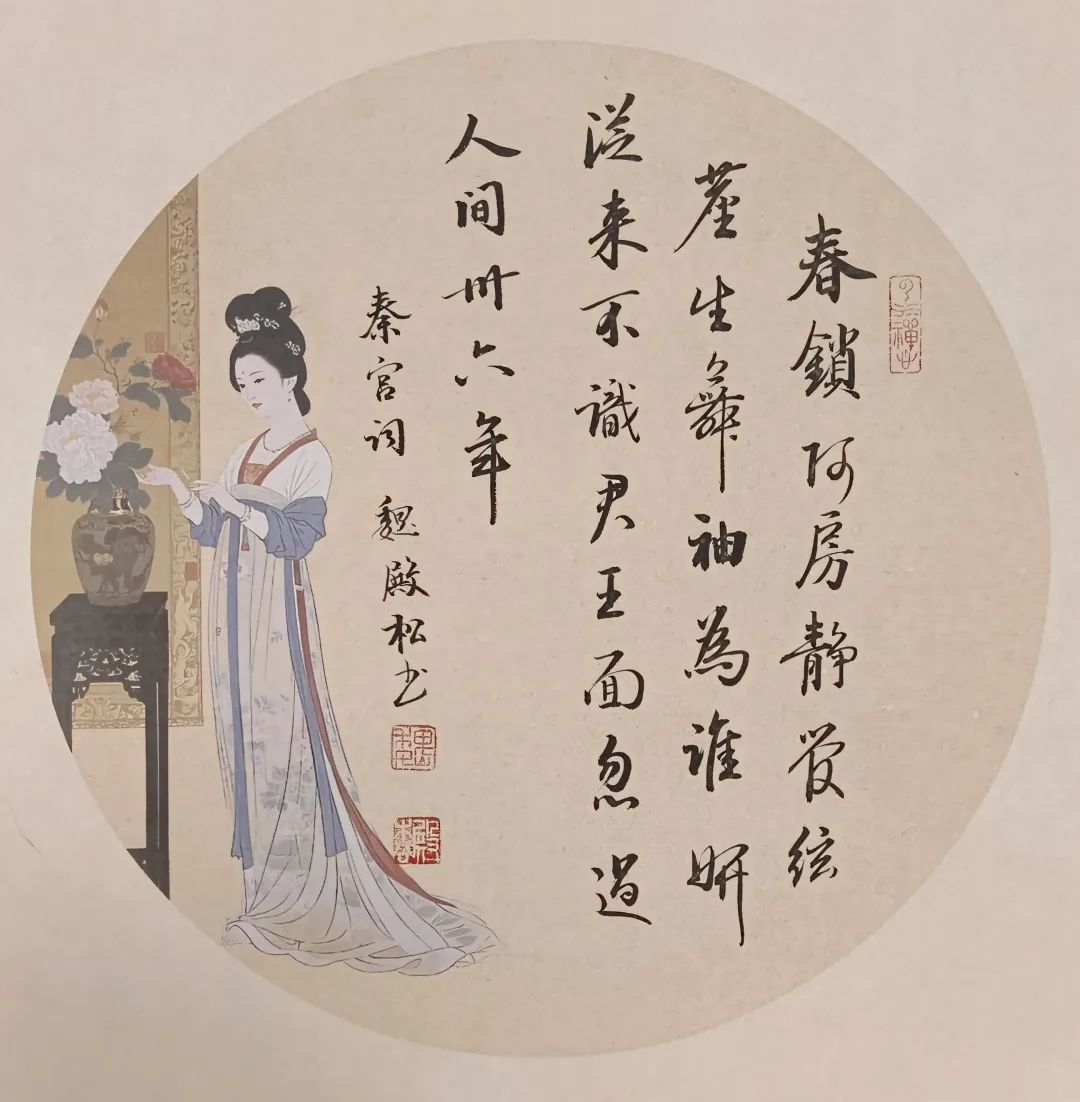 春鎖阿房静管絃
塵生舞袖為誰妍
從来不識君王面忽過
人间卅六年
秦宫词 魏殿松书